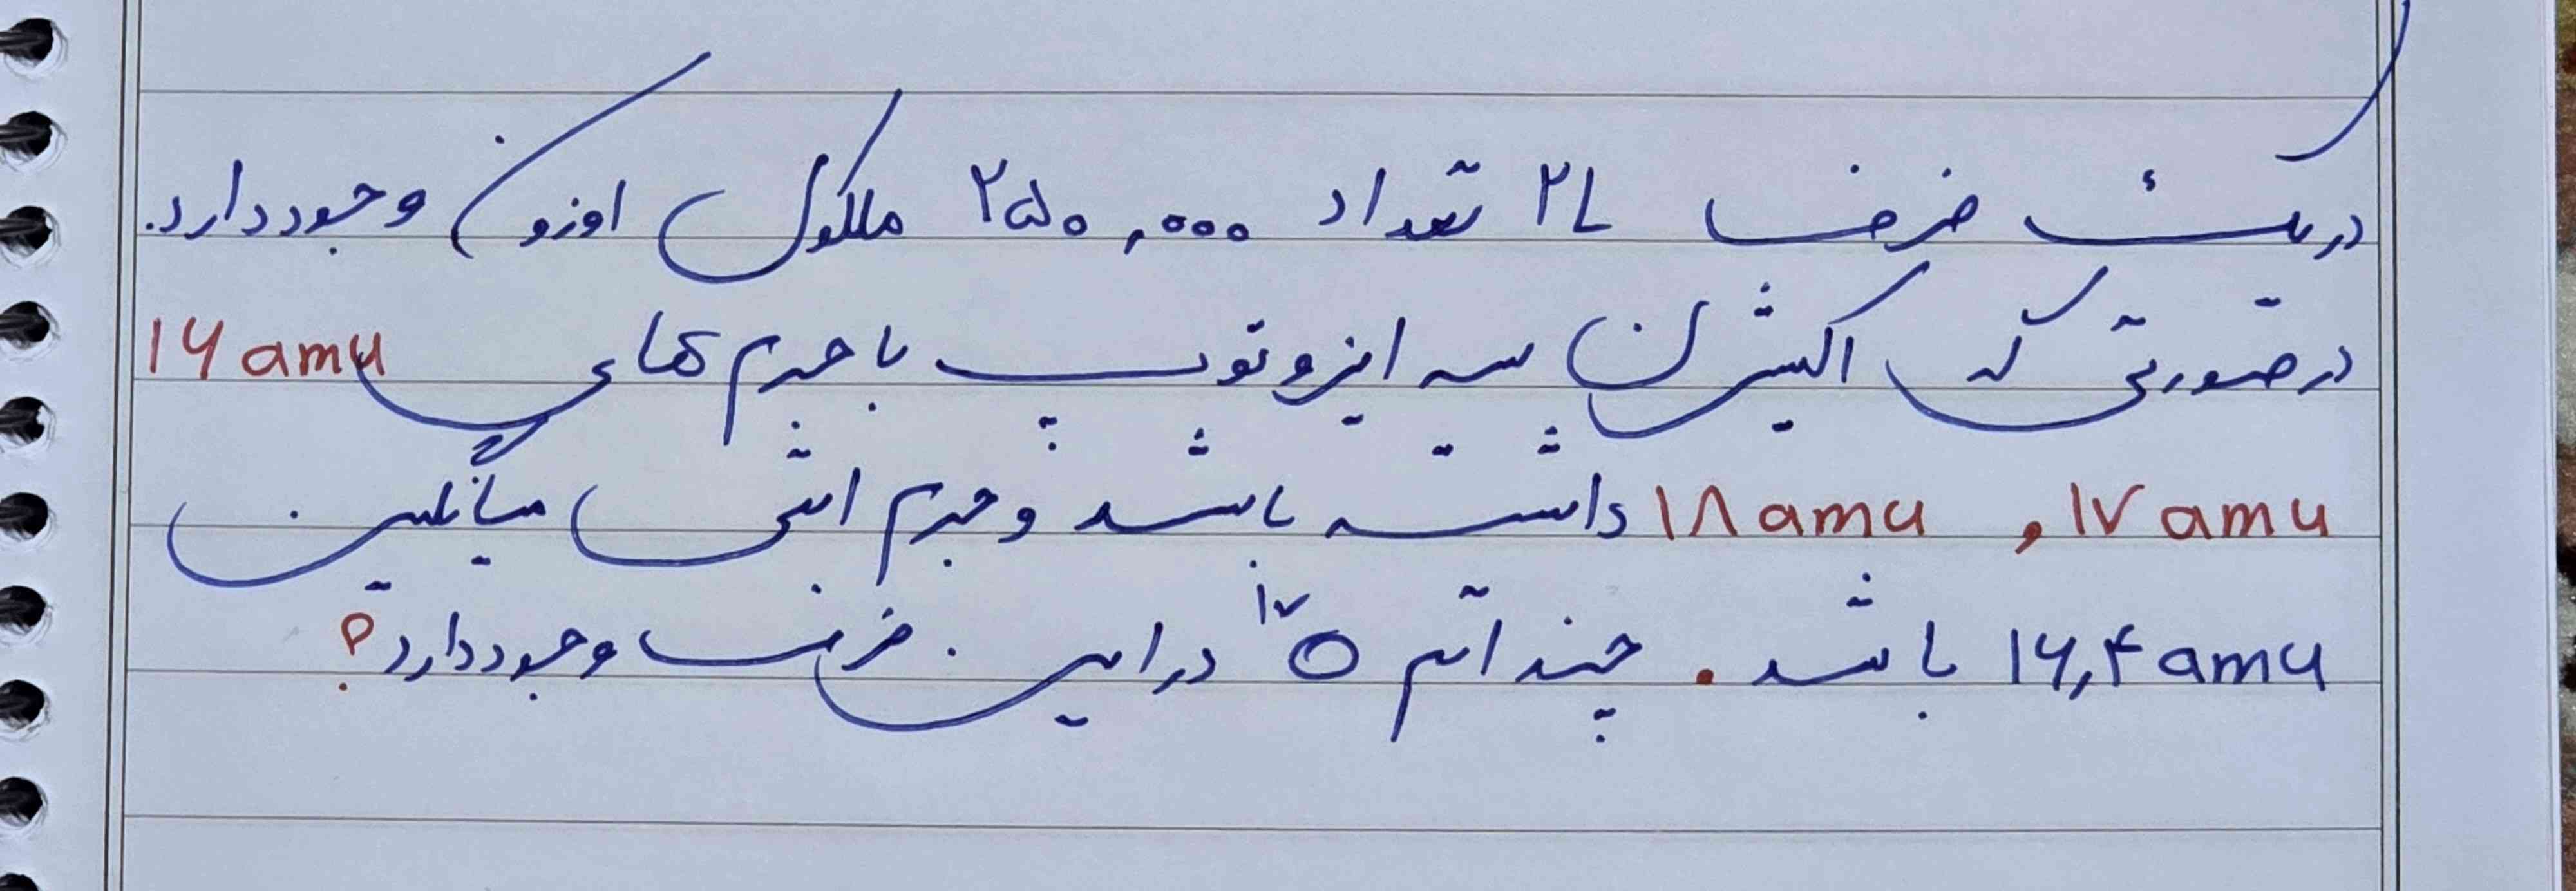 در یک ظرف ۲L تعداد ۲۵۰,۰۰۰ ملکول اوزون وجود دارد.
در صورتی که اکسیژن سه ایزوتوپ با جرم های ۱۶amu
۱۷amu , ۱۸amu داشته باشد و جرم اتمی میانگین
۱۶,۴amu باشد. چند اتم ¹⁷O در این ظرف وجود دارد؟